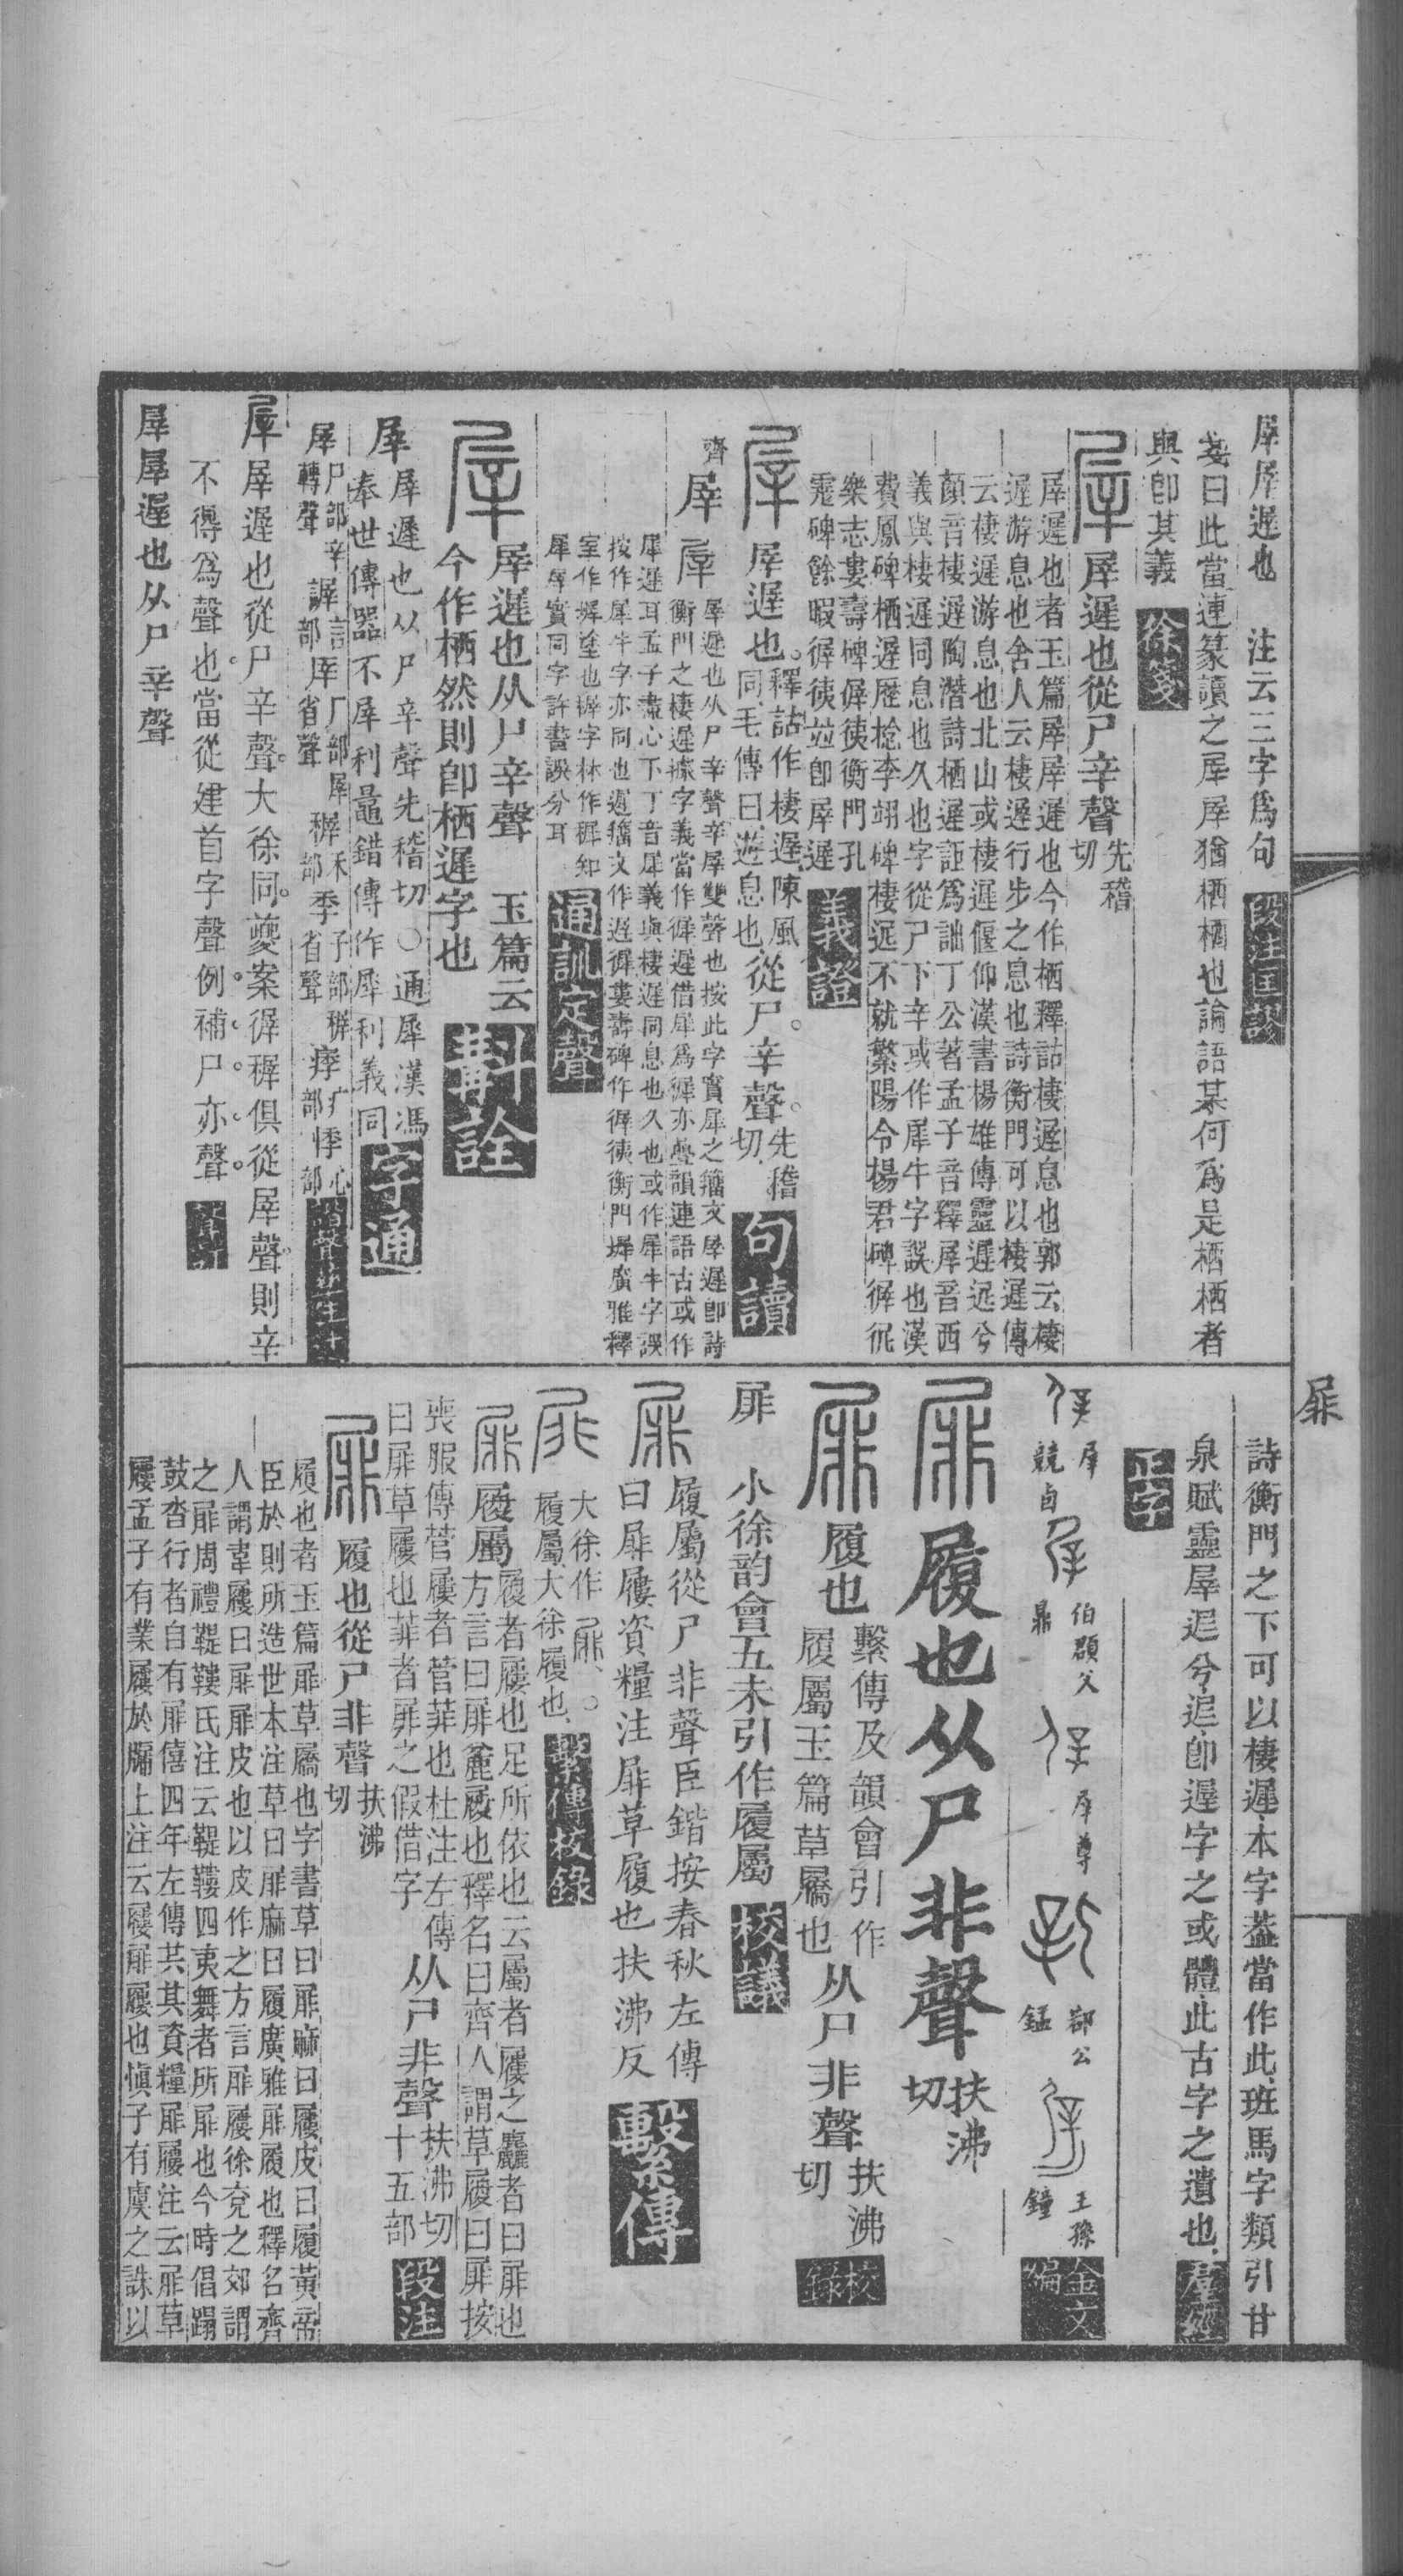 屖屖遲也　注云三字爲句　段注匡謬
箋曰此當連篆讀之屖屖猶栖栖也論語某何爲是栖栖者
與卽其義　徐箋
屖遲也從尸辛聲先稽切
屖遲也者玉篇屖屖遲也今作栖釋詁棲遲息也郭云棲
遲游息也舍人云棲遲行步之息也詩衡門可以棲遲傳
云棲遲游息也北山或棲遲偃仰漢書楊雄傳靈遲迟兮
顏音棲遲陶潛詩栖遲詎爲詘丁公著孟子音釋屖音西
義與棲遲同息也久也字從尸下辛或作犀牛字誤也漢
費鳳碑栖遲歷稔李翊碑棲遲不就繁陽令楊君碑徲𢓡
樂志婁壽碑徲㣢衡門孔
霬碑餘暇徲㣢竝卽屖遲　義證
屖遲也釋詁作棲遲陳風同毛傳曰遊息也從尸辛聲先稽切　句讀
齊
屖　屖遲也从尸辛聲辛屖雙聲也按此字實犀之籀文屖遲卽詩
衡門之棲遲據字義當作徲遲借犀爲徲亦疊韻連語古或作
犀遲耳孟子盡心下丁音犀義與棲遲同息也久也或作犀牛字誤
按作犀牛字亦同也遲籀文作遟徲婁壽碑作徲㣢衡門墀廣雅釋
室作墀塗也
犀屖實同字許書誤分耳　通訓定聲
屖遲也从尸辛聲　玉篇云
今作栖然則卽栖遲字也　斠詮
屖　屖遲也从尸辛聲先稽切○通犀漢馮
奉世傳器不犀利鼂錯傳作犀利義同　字通
屖尸部辛轉聲　謘言部　㕍厂部屖省聲　稺禾部　季子部稺省聲　㾷疒部　悸心部　諧聲
屖遲也從尸辛聲大徐同夔案徲稺俱從屖聲則辛
不得爲聲也當從建首字聲例補尸亦聲　聲訂
屖屖遲也从尸辛聲
屝
詩衡門之下可以棲遲本字葢當作此班馬字類引甘
泉賦靈屖迟兮迟卽遲字之或體此古字之遺也
正字
屖競卣　伯頵父鼎　屖尊　鄀公錳　王孫鐘　金文編
履也从尸非聲扶沸切
履也　繫傳及韻會引作履屬玉篇草屩也　从尸非聲扶沸切　校錄
屝　小徐韵會五未引作履屬　校議
履屬從尸非聲臣鍇按春秋左傳
曰屝屨資糧注屝草履也扶沸反　繫傳
大徐作　履屬大徐履也　繫傳校錄
履屬履者屨也足所依也云屬者屨之麤者曰屝也
方言曰屝麤屨也釋名曰齊人謂草屨曰屝按
喪服傳菅屨者菅菲也杜注左傳
曰屝草屨也菲者屝之假借字　从尸非聲扶沸切十五部　段注
履也從尸非聲扶沸切
履也者玉篇屝草屩也字書草曰屝麻曰屨皮曰履黃帝
臣於則所造世本注草曰屝麻曰履廣雅屝履也釋名齊
人謂韋屨曰屝屝皮也以皮作之方言屝屨徐兗之郊謂
之屝周禮鞮鞻氏注云鞮鞻四夷舞者所屝也今時倡蹋
鼓沓行者自有屝僖四年左傳共其資糧屝屨注云屝草
屨孟子有業屨於牖上注云屨屝屨也愼子有虞之誅以